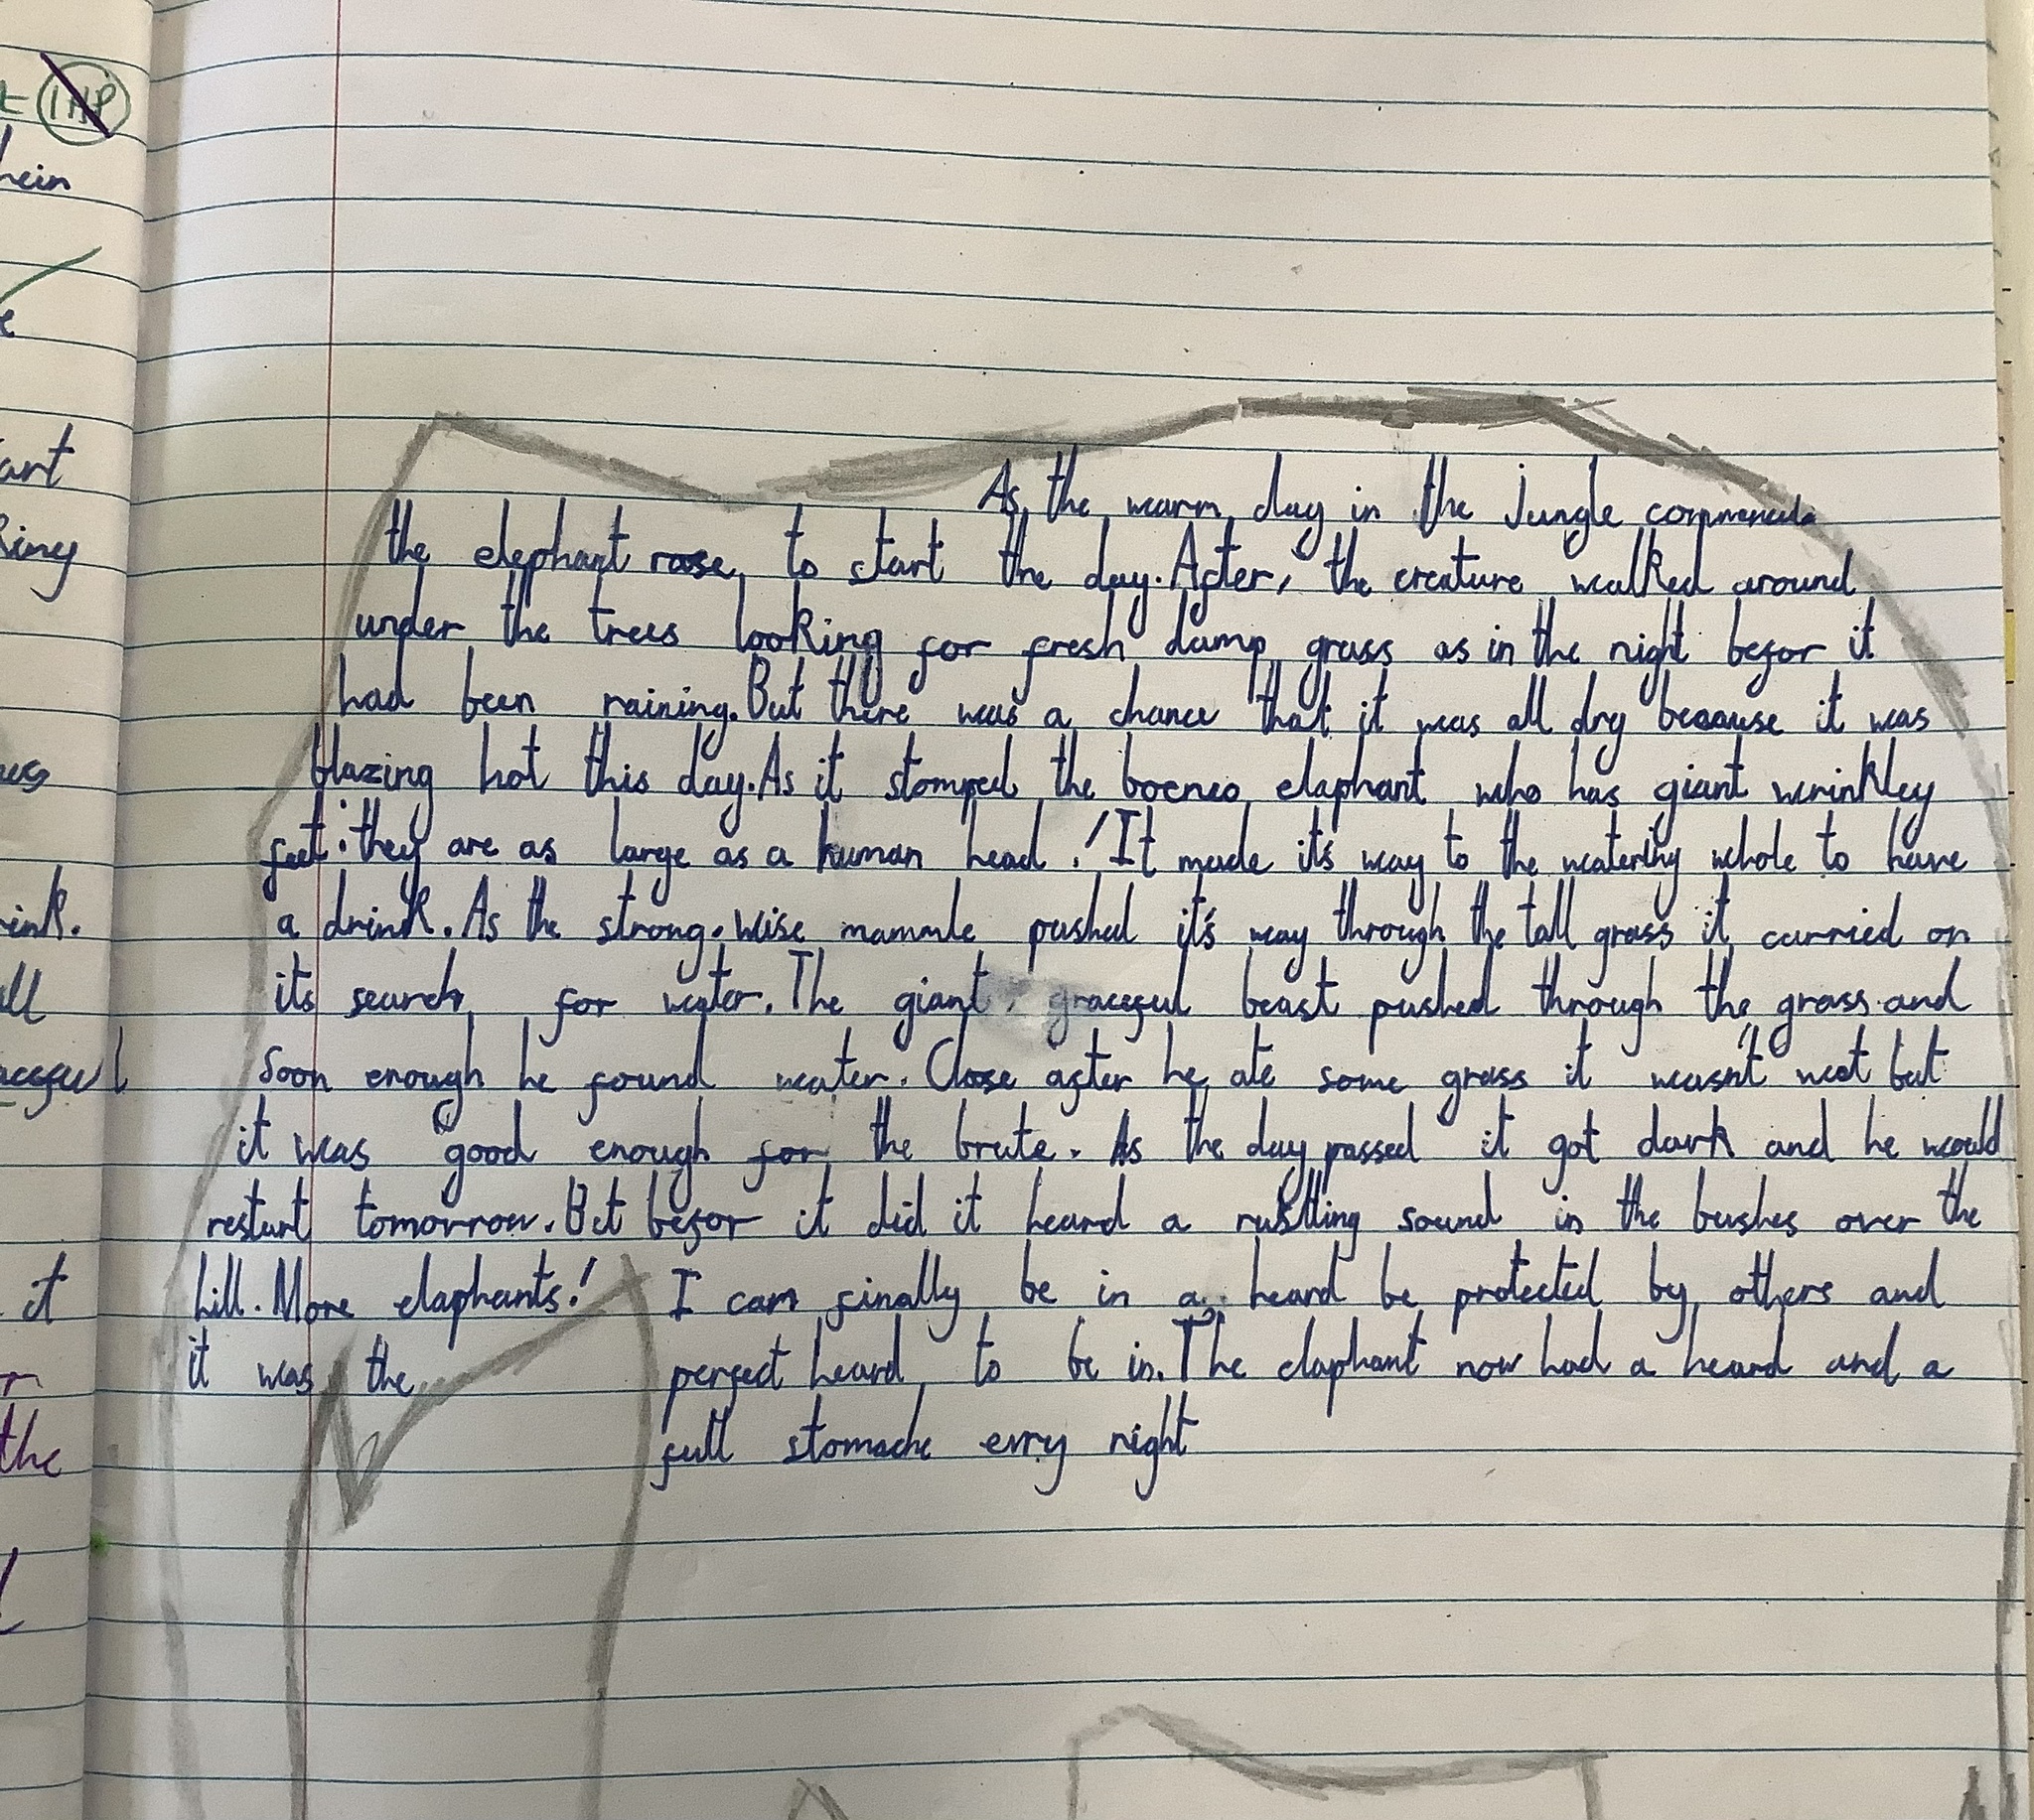 IHP
hein
e
art
ink.
ll
it
the
As the warm day in the jungle
the elephant rose to start the day. After, the creature walked around
under the trees looking for fresh damp grass as in the night befor it
had been raining. But there was a chance that it was all dry because it was
blazing hot this day. As it stomped the boeneo elaphant who has giant wrinkley
feet: they are as large as a human head! It made it's way to the watering whole to have
a drink. As the strong, wise mammle pushed it's way through the tall grass it carried on
its search for water. The giant, graceful beast pushed through the grass and
soon enough he found water. Close after he ate some grass it wasn't wet but
it was good enough for the brute. As the day passed it got dark and he would
restart tomorrow. But befor it did it heard a rustling sound in the bushes over the
hill. More elaphants! I cam finally be in a heard be protected by others and
it was the perfect heard to be in. The elaphant now had a heard and a
full stomache evry night